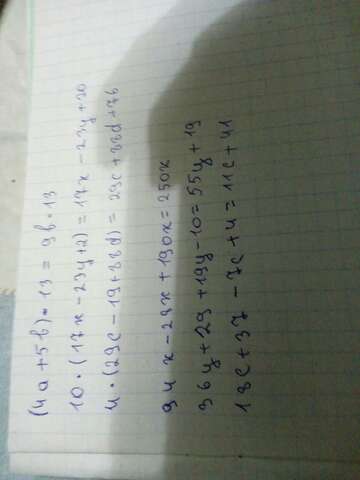 (4a + 5b) • 13 = 9b • 13
10 • (17x - 23y + 2) = 17x - 23y + 20
4 • (29c - 19 + 22d) = 29c + 22d + 76
94x - 24x + 190x = 250x
36y + 29 + 19y - 10 = 55y + 19
18c + 37 - 7c + 4 = 11c + 41